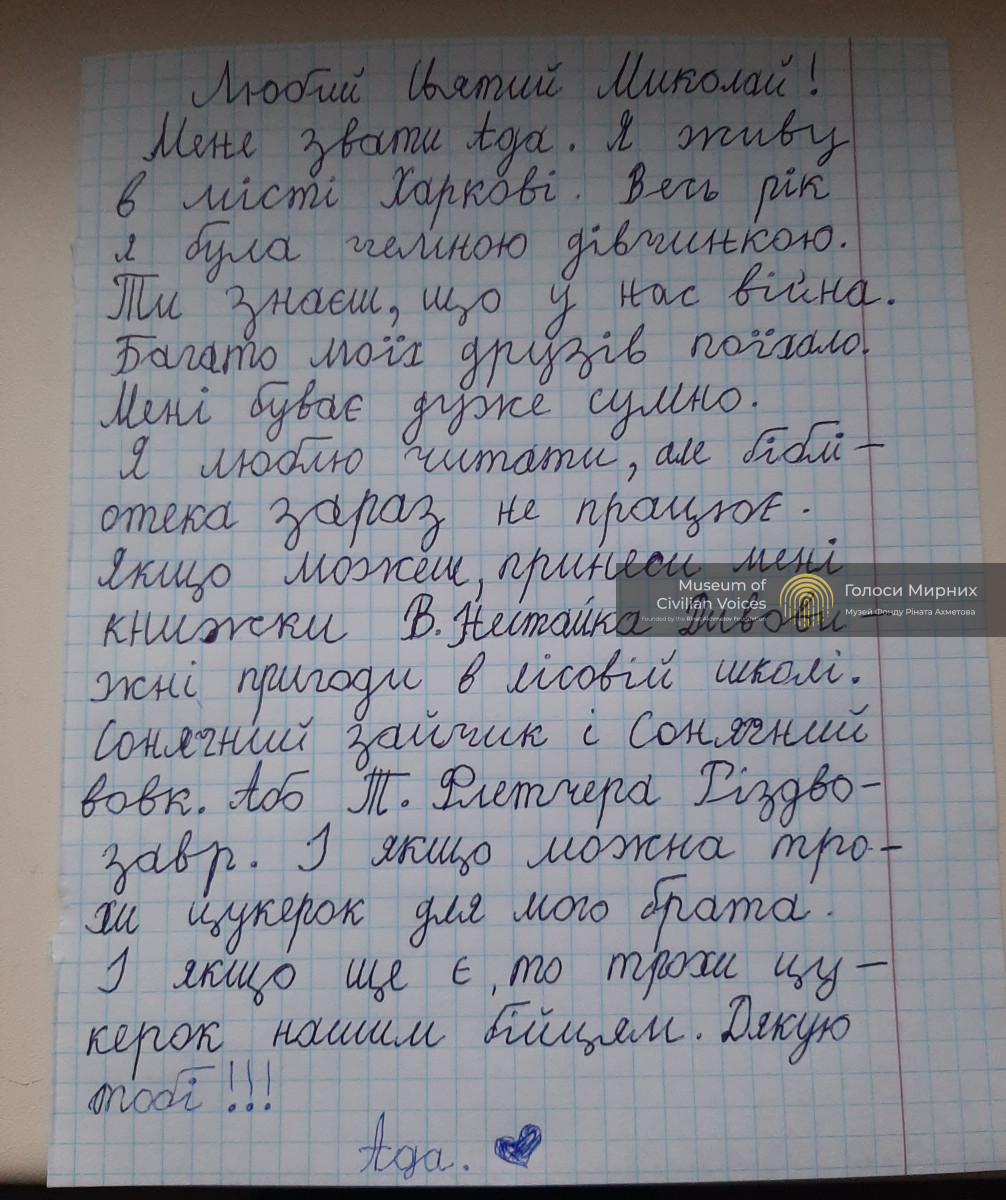 Любий Святий Миколай!
Мене звати Ада. Я живу
в місті Харкові. Весь рік
я була чемною дівчинкою.
Ти знаєш, що у нас війна.
Багато моїх друзів поїхало.
Мені буває дуже сумно.
Я люблю читати, але біблі-
отека зараз не працює.
Якщо можеш, принеси мені
книжки В. Нестайка Дивови-
жні пригоди в лісовій школі.
Сонячний зайчик і Сонячний
вовк. Або Т. Флетчера Різдво-
завр. І якщо можна тро-
хи цукерок для мого брата.
І якщо ще є, то трохи цу-
керок нашим бійцям. Дякую
тобі!!!
Ада.
Museum of
Civilian Voices
Founded by the Rinat Akhmetov Foundation
Голоси Мирних
Музей Фонду Ріната Ахметова